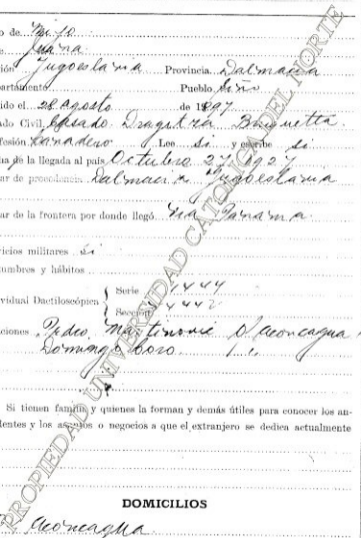 o de
Juana
ión Jugoeslavia Provincia Dalmacia
partamento Pueblo
ido el 28 agosto de 1897
ado Civil, Casado
fesión Panadero Lee si y escribe si
a de la llegada al país Octubre 27, 1927
ar de procedencia Dalmacia Jugoeslavia
ar de la frontera por donde llegó Via Panama
icios militares si
umbres y hábitos
vidual Dactiloscópica { Serie 4444
Sección 4442
ciones Pedro Martinovic Aconcagua
Domingo Coro
Si tienen familia y quienes la forman y demás útiles para conocer los an-
dentes y los asuntos o negocios a que el extranjero se dedica actualmente
DOMICILIOS
Aconcagua
PROPIEDAD UNIVERSIDAD CATOLICA DEL NORTE